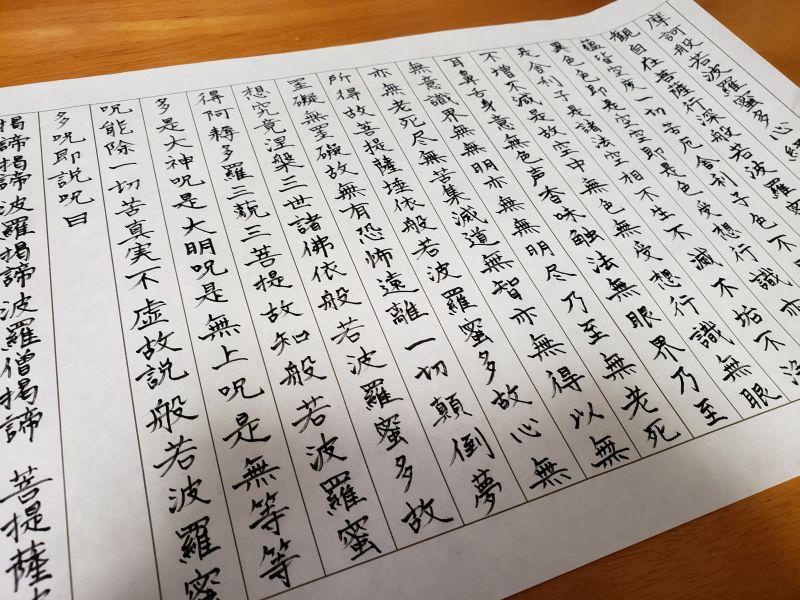 摩訶般若波羅蜜多心経
観自在菩薩行深般若波羅蜜
蘊皆空度一切苦厄舎利子色不
異色色即是空空即是色受想行識亦
是舎利子是諸法空相不生不滅不垢不浄
不増不減是故空中無色無受想行識無眼
耳鼻舌身意無色声香味触法無眼界乃至
無意識界無無明亦無無明尽乃至無老死
亦無老死尽無苦集滅道無智亦無得以無
所得故菩提薩埵依般若波羅蜜多故心無
罣礙無罣礙故無有恐怖遠離一切顛倒夢
想究竟涅槃三世諸佛依般若波羅蜜多故
得阿耨多羅三藐三菩提故知般若波羅蜜
多是大神呪是大明呪是無上呪是無等等
呪能除一切苦真実不虚故説般若波羅蜜
多呪即説呪曰
掲諦掲諦波羅掲諦波羅僧掲諦 菩提薩